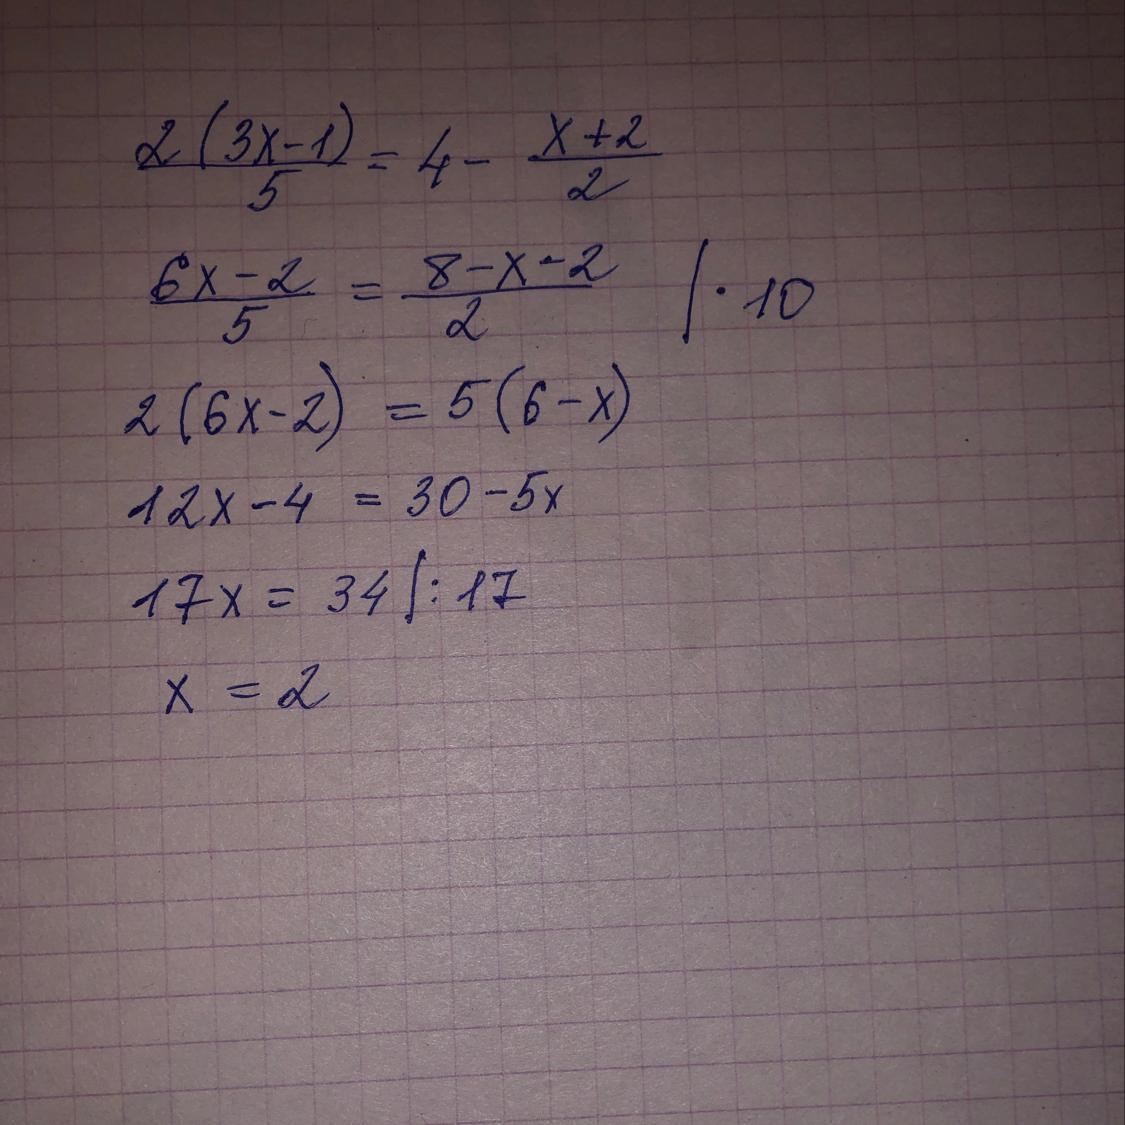 2(3x-1)/5 = 4 - (x+2)/2
(6x-2)/5 = (8-x-2)/2 | · 10
2(6x-2) = 5(6-x)
12x-4 = 30-5x
17x = 34 | : 17
x = 2